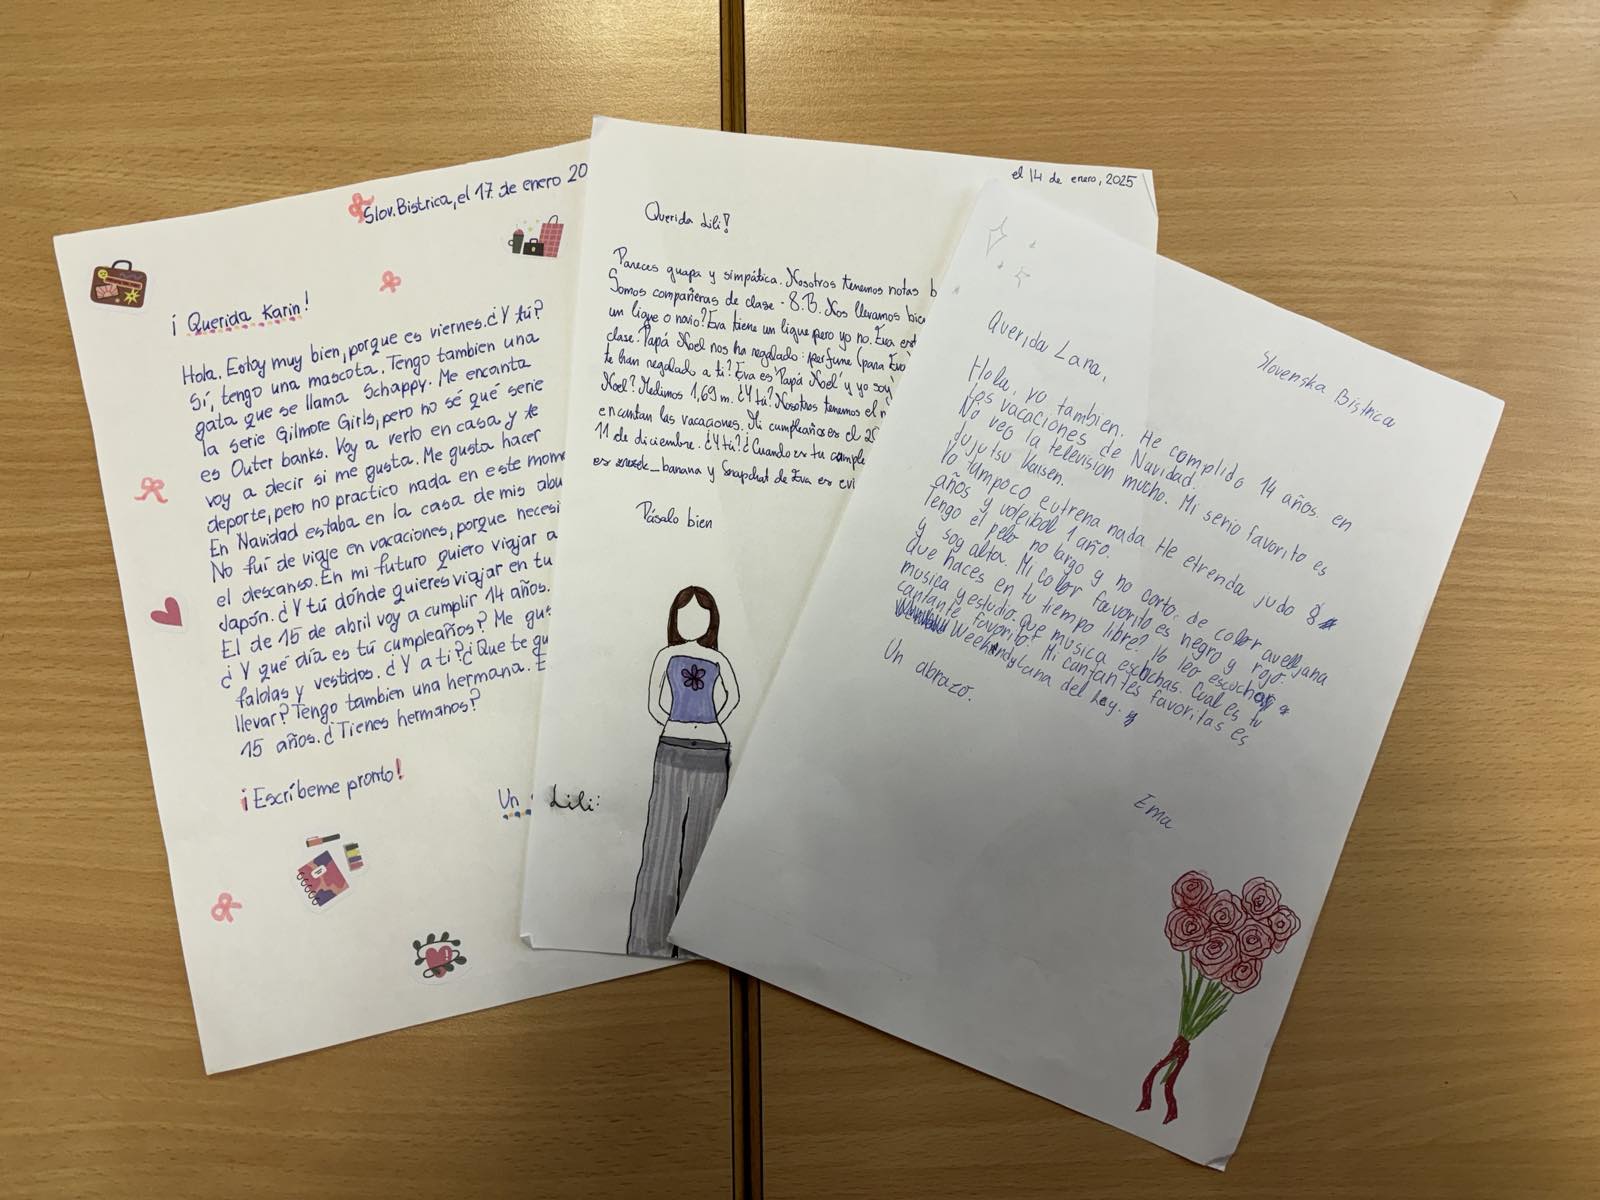 Slov. Bistrica, el 17 de enero 20
¡ Querida Karin!
Hola. Estoy muy bien, porque es viernes. ¿Y tú?
Sí, tengo una mascota. Tengo tambien una
gata que se llama Schappy. Me encanta
la serie Gilmore Girls, pero no sé qué serie
es Outer banks. Voy a verlo en casa y te
voy a decir si me gusta. Me gusta hacer
deporte, pero no practico nada en este mom
En Navidad estaba en la casa de mis abu
No fuí de viaje en vacaciones, porque necesi
el descanso. En mi futuro quiero viajar a
Japón. ¿Y tú dónde quieres viajar en tu
El de 15 de abril voy a cumplir 14 años.
¿Y qué día es tú cumpleaños? Me gus
faldas y vestidos. ¿Y a ti? ¿Que te gu
llevar? Tengo tambien una hermana. E
15 años. ¿Tienes hermanos?
¡Escríbeme pronto!
Un
el 14 de enero, 2025
Querida Lili!
Pareces guapa y simpática. Nosotros tenemos notas b
Somos compañeras de clase - 8.B. Nos llevamos bien
un ligue o novio? Eva tiene un ligue pero yo no. Eva est
clase. Papá Noel nos ha regalado: perfume (para Eva)
te han regalado a ti? Eva es Papá Noel y yo soy
Noel? Medimos 1,69 m. ¿Y tú? Nosotros tenemos el
encantan las vacaciones. Mi cumpleaños es el 2
11 de diciembre. ¿Y tú? ¿Cuando es tu cumple
es _banana y Snapchat de Eva es evi
Pásalo bien
Lili:
Slovenska Bistrica
Querida Lana,
Hola, yo tambien. He complido 14 años. en
Los vacaciones de Navidad.
No veo la television mucho. Mi serio favorito es
Jujutsu Kaisen.
Yo tampoco eutrena nada. He etrenda judo 8
años y voleibol 1 año.
Tengo el pelo no largo y no corto. de color avellana
y soy alta. Mi color favorito es negro y rojo.
Que haces en tu tiempo libre? Yo leo escuchar
musica y estudio. Que musica escuchas. Cual es tu
cantante favorito? Mi cantantes favoritas es
Weekend y Lana del Rey.
Un abrazo.
Ema